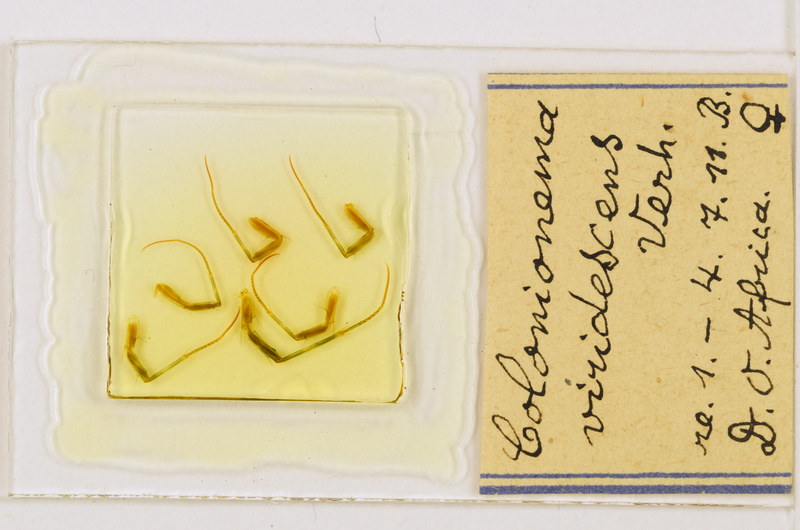 Colonionema
viridescens
Verh.
re. 1. – 4. 7. 11. B.
D. O. Africa. ♀